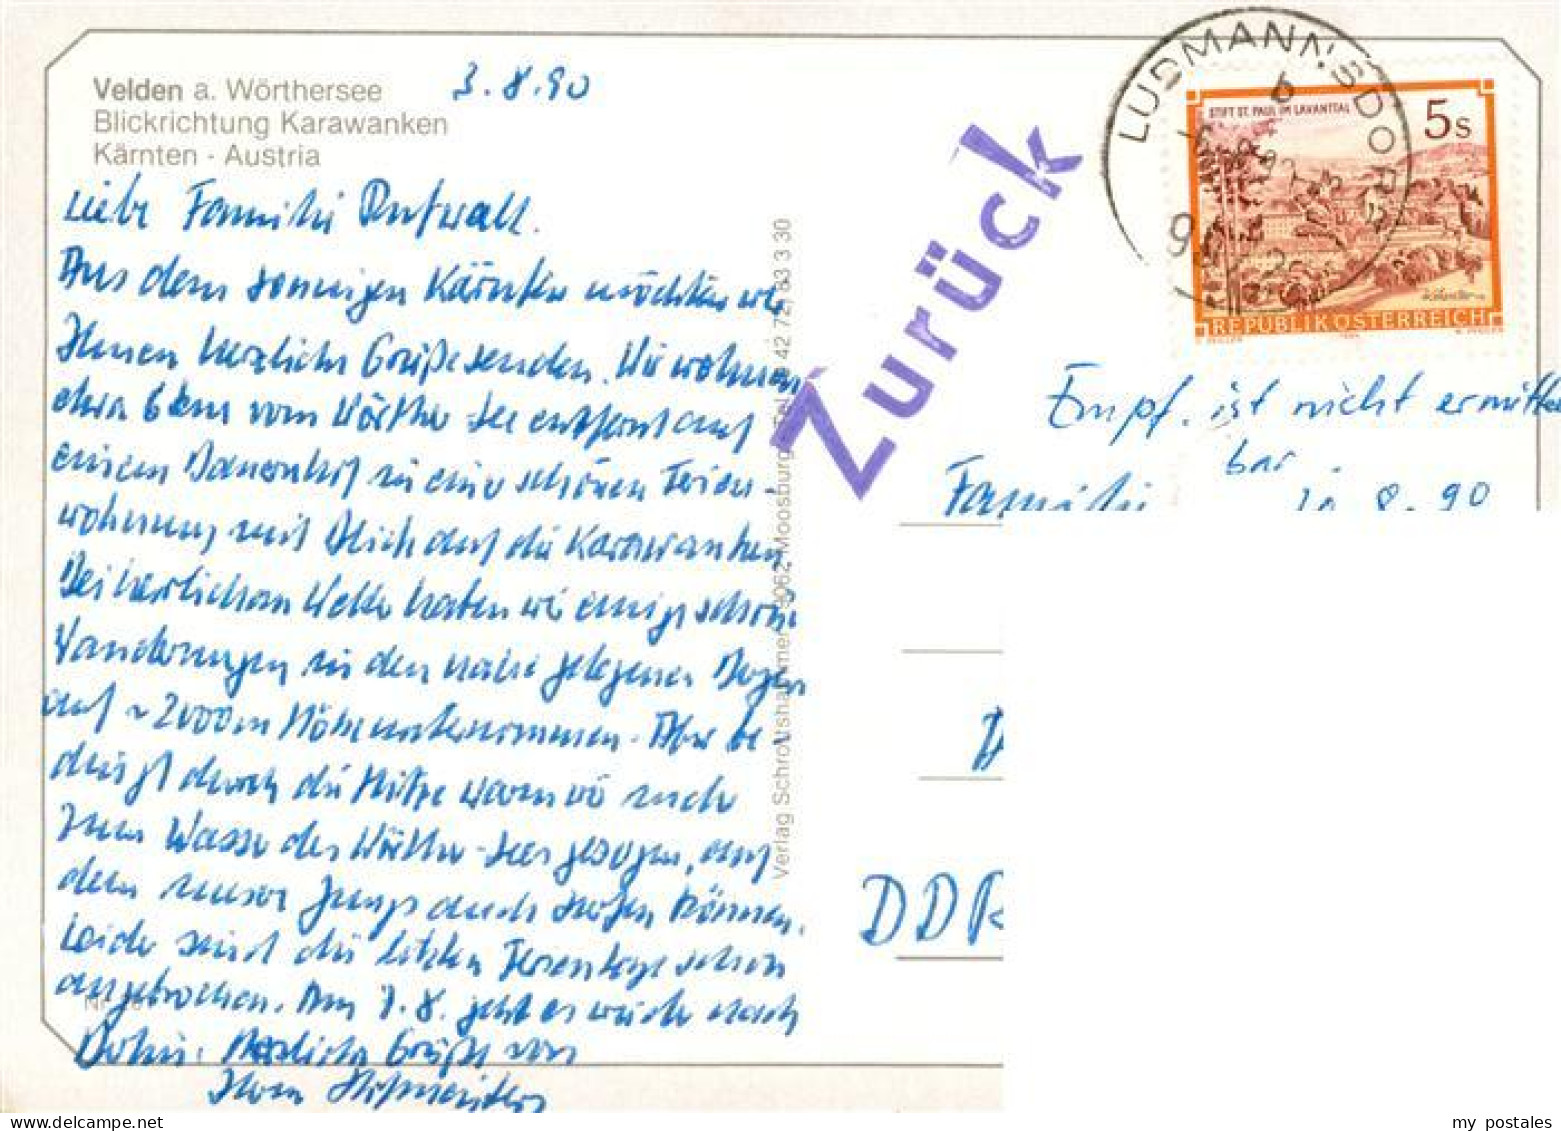 Velden a. Wörthersee
Blickrichtung Karawanken
Kärnten - Austria
3.8.90
Liebe Familie
Aus dem sonnigen Kärnten möchten wir
Ihnen herzliche Grüße senden. Wir wohnen
etwa 6 km vom Wörther-See entfernt auf
einem Bauernhof in einer schönen Ferien-
wohnung mit Blick auf die Karawanken.
Bei herrlichem Wetter haben wir einige schöne
Wanderungen in den nahe gelegenen Bergen
auf ~2000m Höhe unternommen. Aber be-
dingt durch die Hitze waren wir auch
zum Wasser des Wörther-Sees gezogen, auf
dem unser Junge auch surfen können.
Leider sind die letzten Ferientage schon
angebrochen. Am 7.8. geht es wieder nach
Berlin. Herzliche Grüße von
Ihren Hofmeisters
Verlag Schroutshammer, 9062 Moosburg, Tel. 0 42 72 / 83 3 30
Nr.
Zurück
LUDMANNSDORF
b
9
STIFT ST. PAUL IM LAVANTTAL
5s
REPUBLIK ÖSTERREICH
Empf. ist nicht ermittel
bar.
8.90
Familie
DDR
my postales